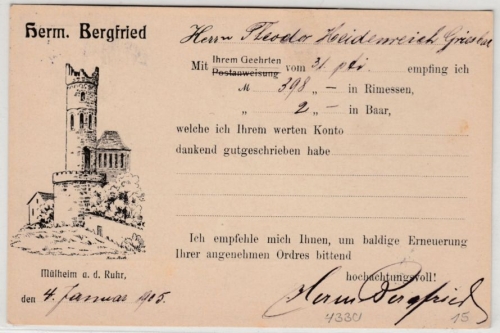 Herm. Bergfried
Herrn Theodor Heidenreich
Mit Ihrem Geehrten
Postanweisung vom 31. pti. empfing ich
M 398 „ — in Rimessen,
„ 2 „ — in Baar,
welche ich Ihrem werten Konto
dankend gutgeschrieben habe
Ich empfehle mich Ihnen, um baldige Erneuerung
Ihrer angenehmen Ordres bittend
hochachtungsvoll!
Mülheim a. d. Ruhr,
den 4. Januar 1905.
Herm Bergfried
4330 15